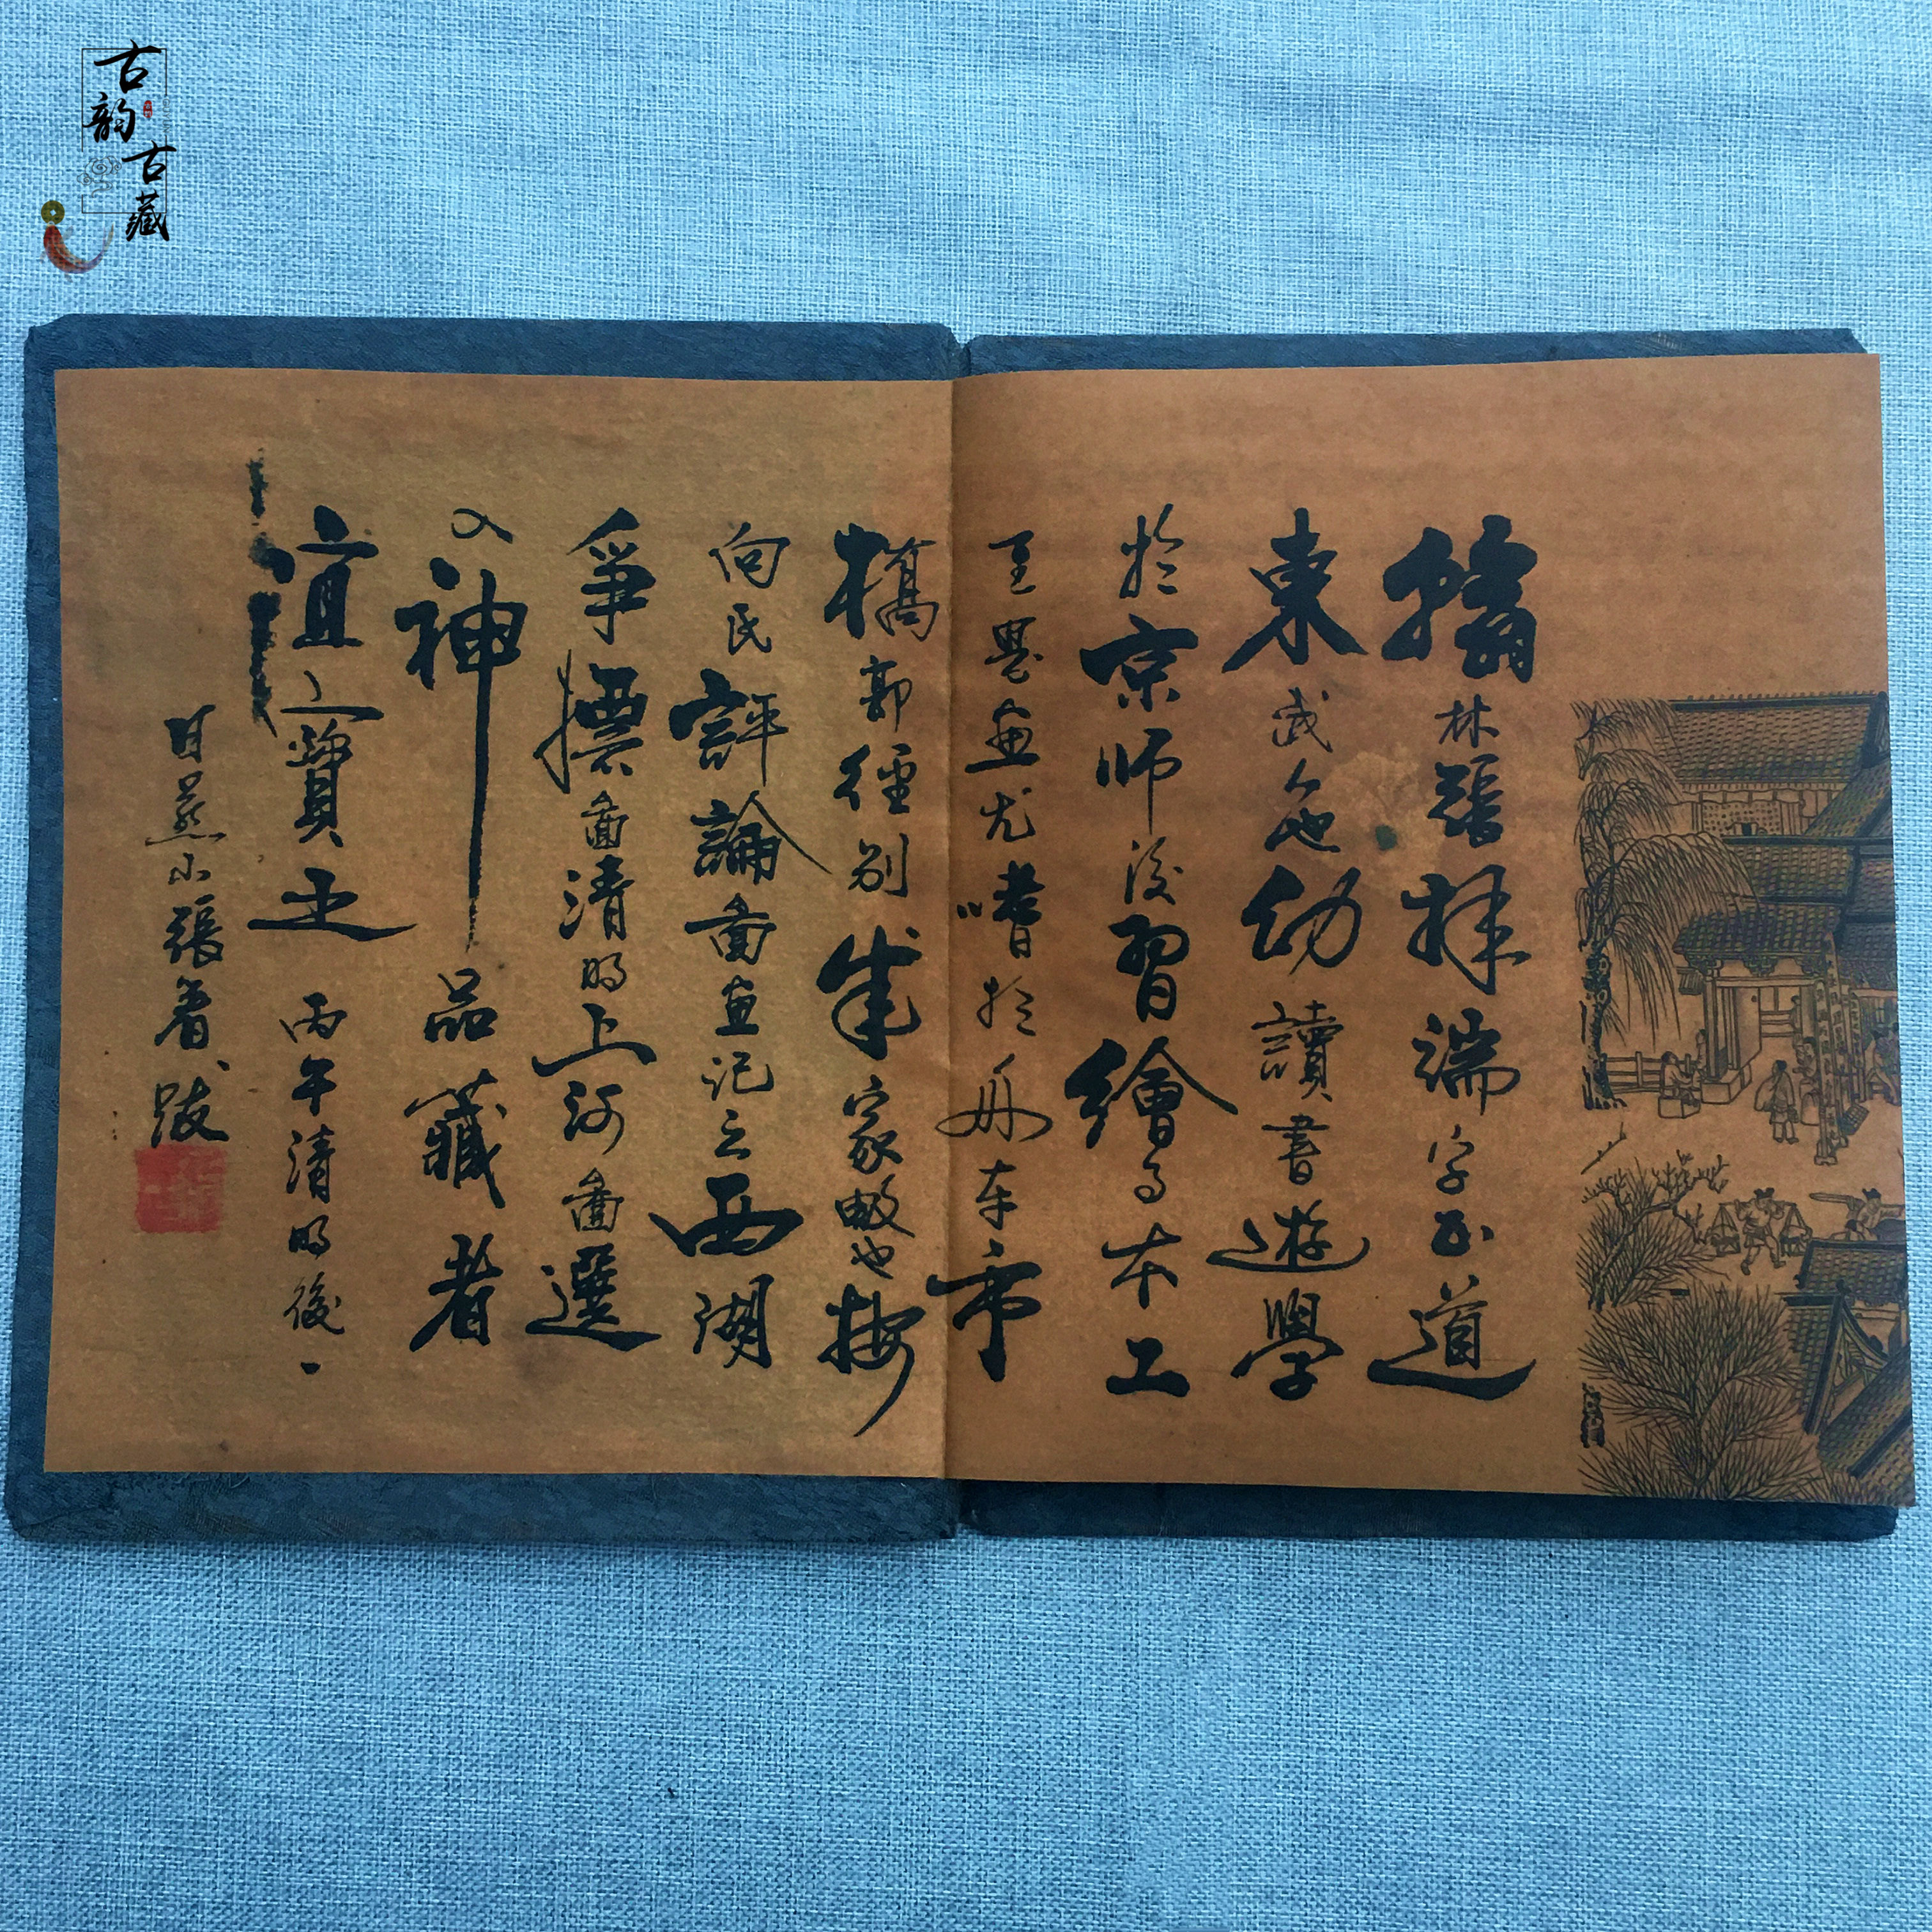 古韵
古藏
翰林張擇端字正道
東武人也幼讀書遊學
於京師後習繪事本工
其界畫尤嗜於舟車市
橋郭徑別成家數也按
向氏評論圖畫記云西湖
爭標圖清明上河圖選
入神品藏者
宜寶之 丙午清明後一
日燕山張著跋